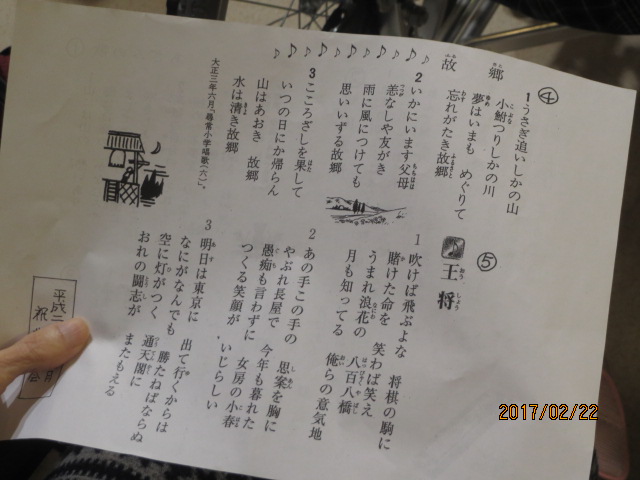 ④
故郷
1 うさぎ追いしかの山
小鮒つりしかの川
夢はいまも めぐりて
忘れがたき故郷
2 いかにいます父母
恙なしや友がき
雨に風につけても
思いいずる故郷
3 こころざしを果して
いつの日にか帰らん
山はあおき 故郷
水は清き故郷
大正三年六月「尋常小学唱歌(六)」。
⑤
王将
1 吹けば飛ぶよな 将棋の駒に
賭けた命を 笑わば笑え
うまれ浪花の 八百八橋
月も知ってる 俺らの意気地
2 あの手この手の 思案を胸に
やぶれ長屋で 今年も暮れた
愚痴も言わずに 女房の小春
つくる笑顔が いじらしい
3 明日は東京に 出て行くからは
なにがなんでも 勝たねばならぬ
空に灯がつく 通天閣に
おれの闘志が またもえる
平成二
祝
会
2017/02/22